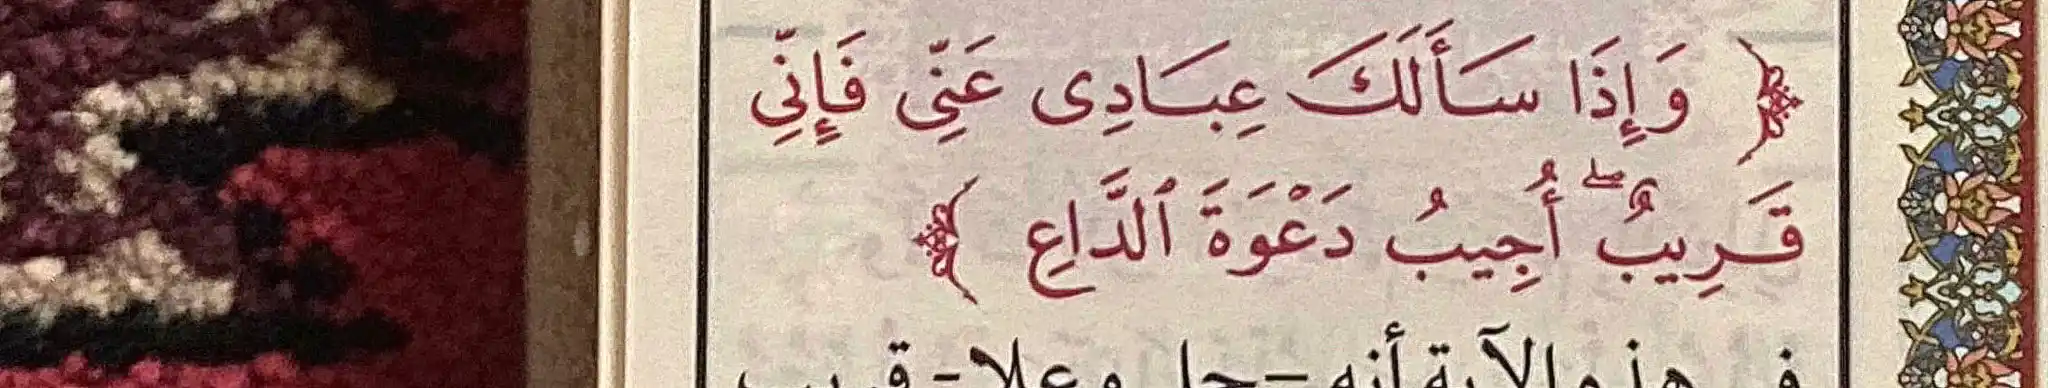 ﴿ وَإِذَا سَأَلَكَ عِبَادِى عَنِّى فَإِنِّى
قَرِيبٌ ۖ أُجِيبُ دَعْوَةَ ٱلدَّاعِ ﴾
في هذه الآية أنه -جل وعلا- قريب